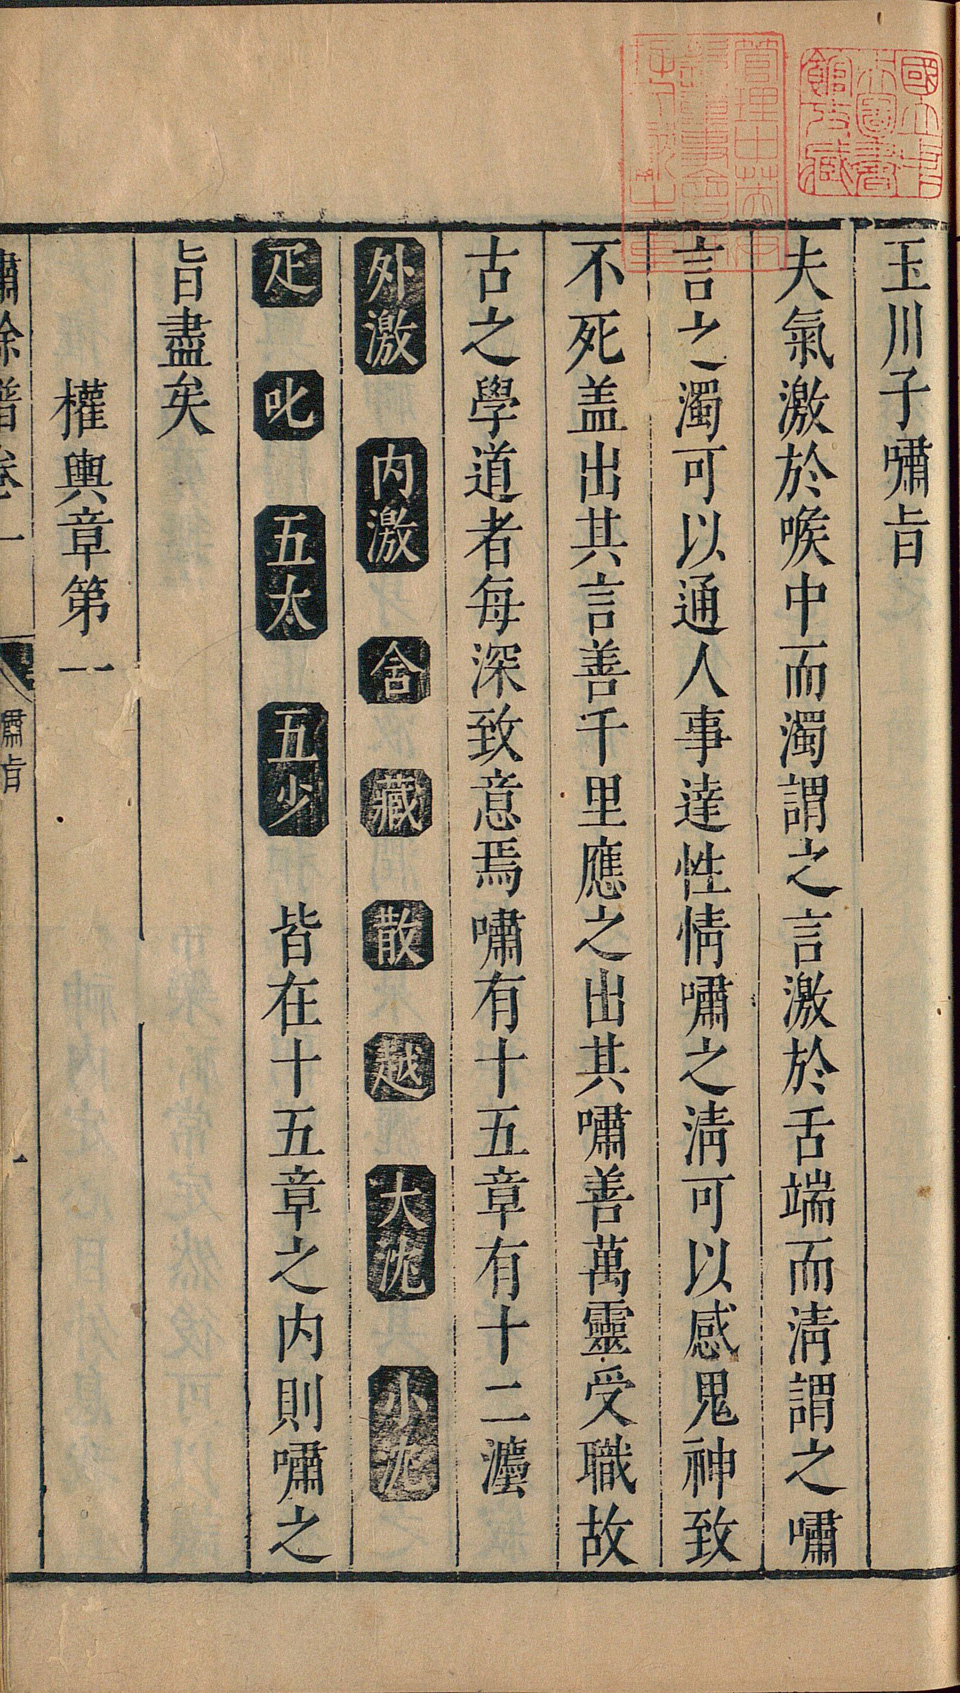 玉川子嘯旨
夫氣激於喉中而濁謂之言激於舌端而淸謂之嘯
言之濁可以通人事達性情嘯之淸可以感鬼神致
不死盖出其言善千里應之出其嘯善萬靈受職故
古之學道者每深致意焉嘯有十五章有十二灋
外激 内激 含 藏 散 越 大沈 小沈
疋 叱 五太 五少 皆在十五章之内則嘯之
旨盡矣
權輿章第一
嘯餘譜卷一
嘯旨
一
國立中央圖書館收藏